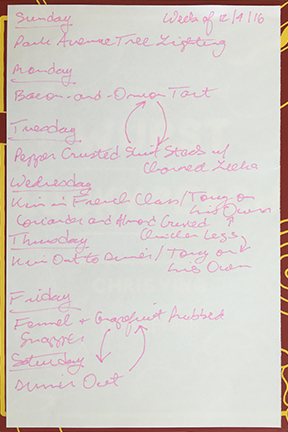 Sunday Week of 12/4/16
Park Avenue Tree Lighting
Monday
Bacon-and-Onion Tart
Tuesday
Pepper Crusted Skirt Steak w/
Charred Leeks
Wednesday
Kim in French Class/Tony on
His Own
Coriander and Almond Crusted
Chicken Legs
Thursday
Kim Out to Dinner/Tony on
His Own
Friday
Fennel + Grapefruit Rubbed
Snapper
Saturday
Dinner Out